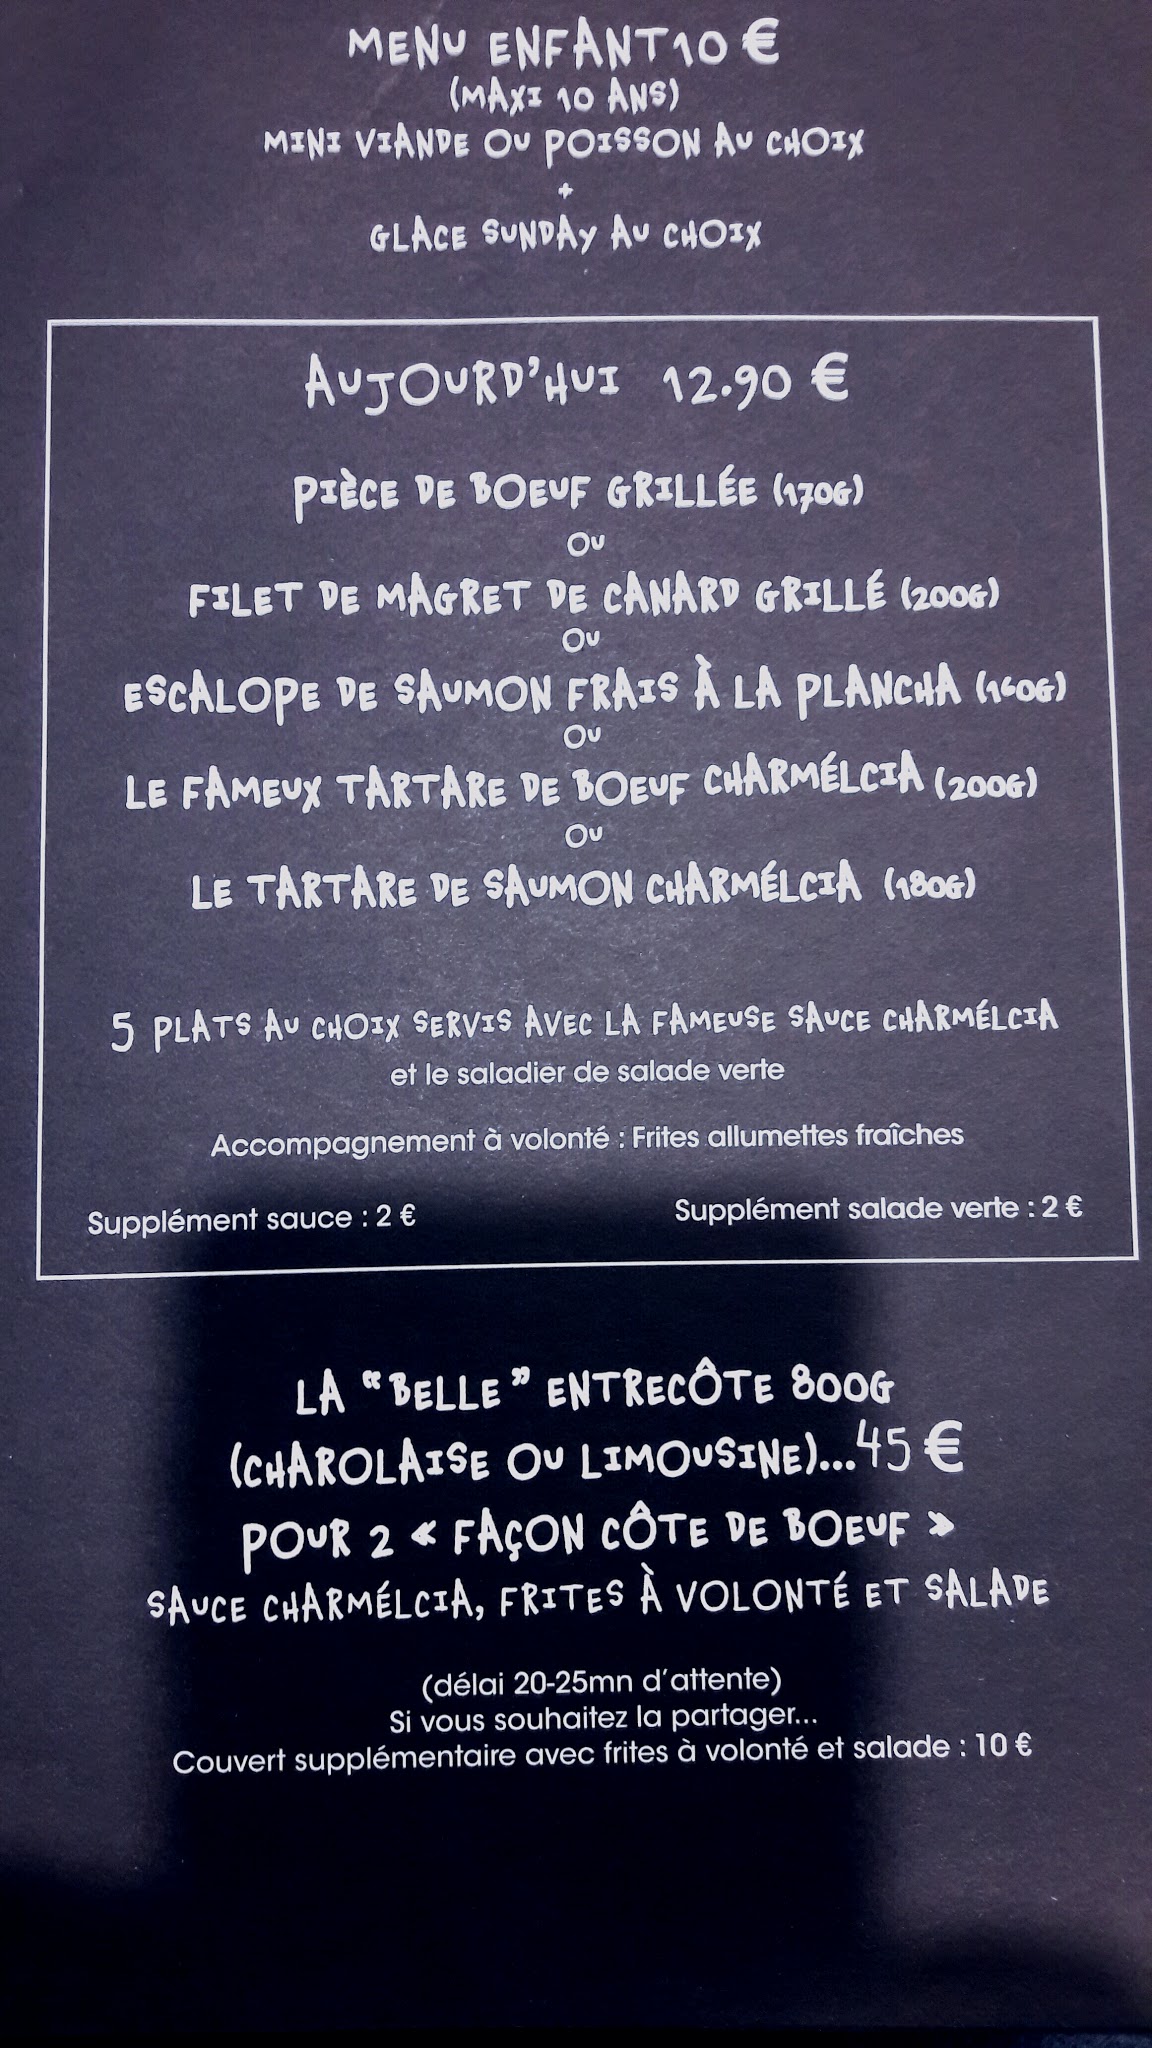 MENU ENFANT 10 €
(MAXI 10 ANS)
MINI VIANDE OU POISSON AU CHOIX
+
GLACE SUNDAY AU CHOIX
AUJOURD'HUI 12.90 €
PIÈCE DE BOEUF GRILLÉE (170G)
OU
FILET DE MAGRET DE CANARD GRILLÉ (200G)
OU
ESCALOPE DE SAUMON FRAIS À LA PLANCHA (160G)
OU
LE FAMEUX TARTARE DE BOEUF CHARMÉLCIA (200G)
OU
LE TARTARE DE SAUMON CHARMÉLCIA (180G)
5 PLATS AU CHOIX SERVIS AVEC LA FAMEUSE SAUCE CHARMÉLCIA
et le saladier de salade verte
Accompagnement à volonté : Frites allumettes fraîches
Supplément sauce : 2 € Supplément salade verte : 2 €
LA "BELLE" ENTRECÔTE 800G
(CHAROLAISE OU LIMOUSINE)...45 €
POUR 2 « FAÇON CÔTE DE BOEUF »
SAUCE CHARMÉLCIA, FRITES À VOLONTÉ ET SALADE
(délai 20-25mn d'attente)
Si vous souhaitez la partager...
Couvert supplémentaire avec frites à volonté et salade : 10 €